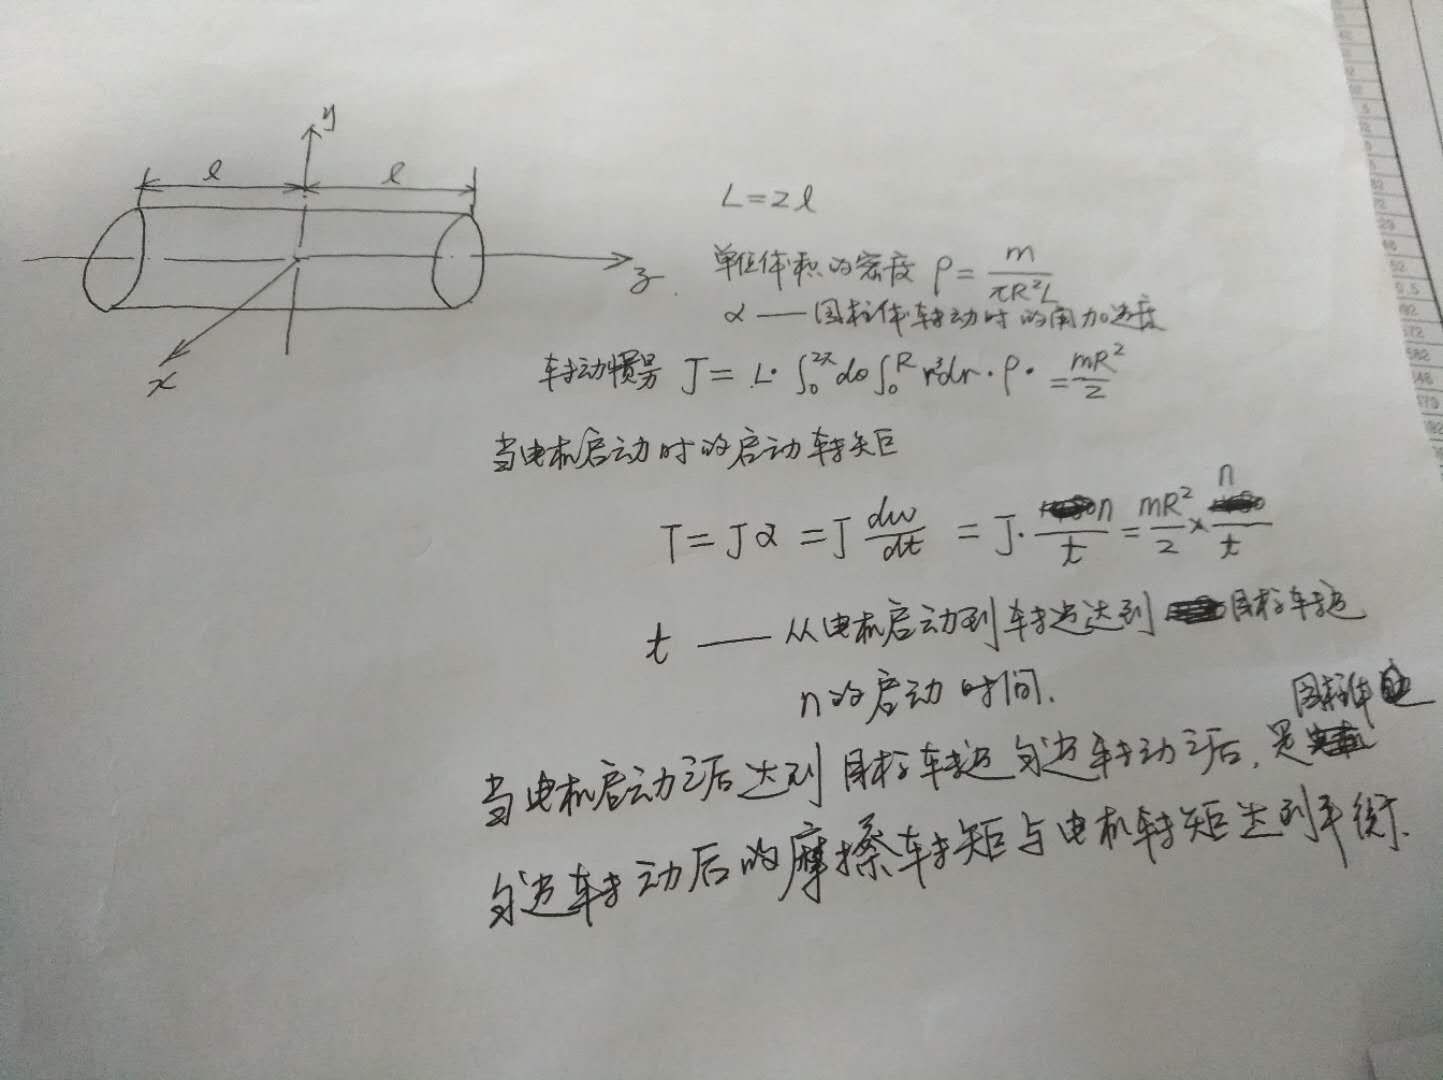 y
l l
L=2l
z
单位体积的密度 ρ = m/πR²L
α —— 圆柱体转动时的角加速度
x
转动惯量 J = L·∫₀^{2π}dθ∫₀^R r³dr·ρ· = mR²/2
当电机启动时的启动转矩
T = Jα = J dω/dt = J· n/t = mR²/2 × n/t
t —— 从电机启动到转速达到 目标转速
n的启动时间.
圆柱体
当电机启动之后达到目标转速匀速转动之后, 是
匀速转动后的摩擦转矩与电机转矩达到平衡.